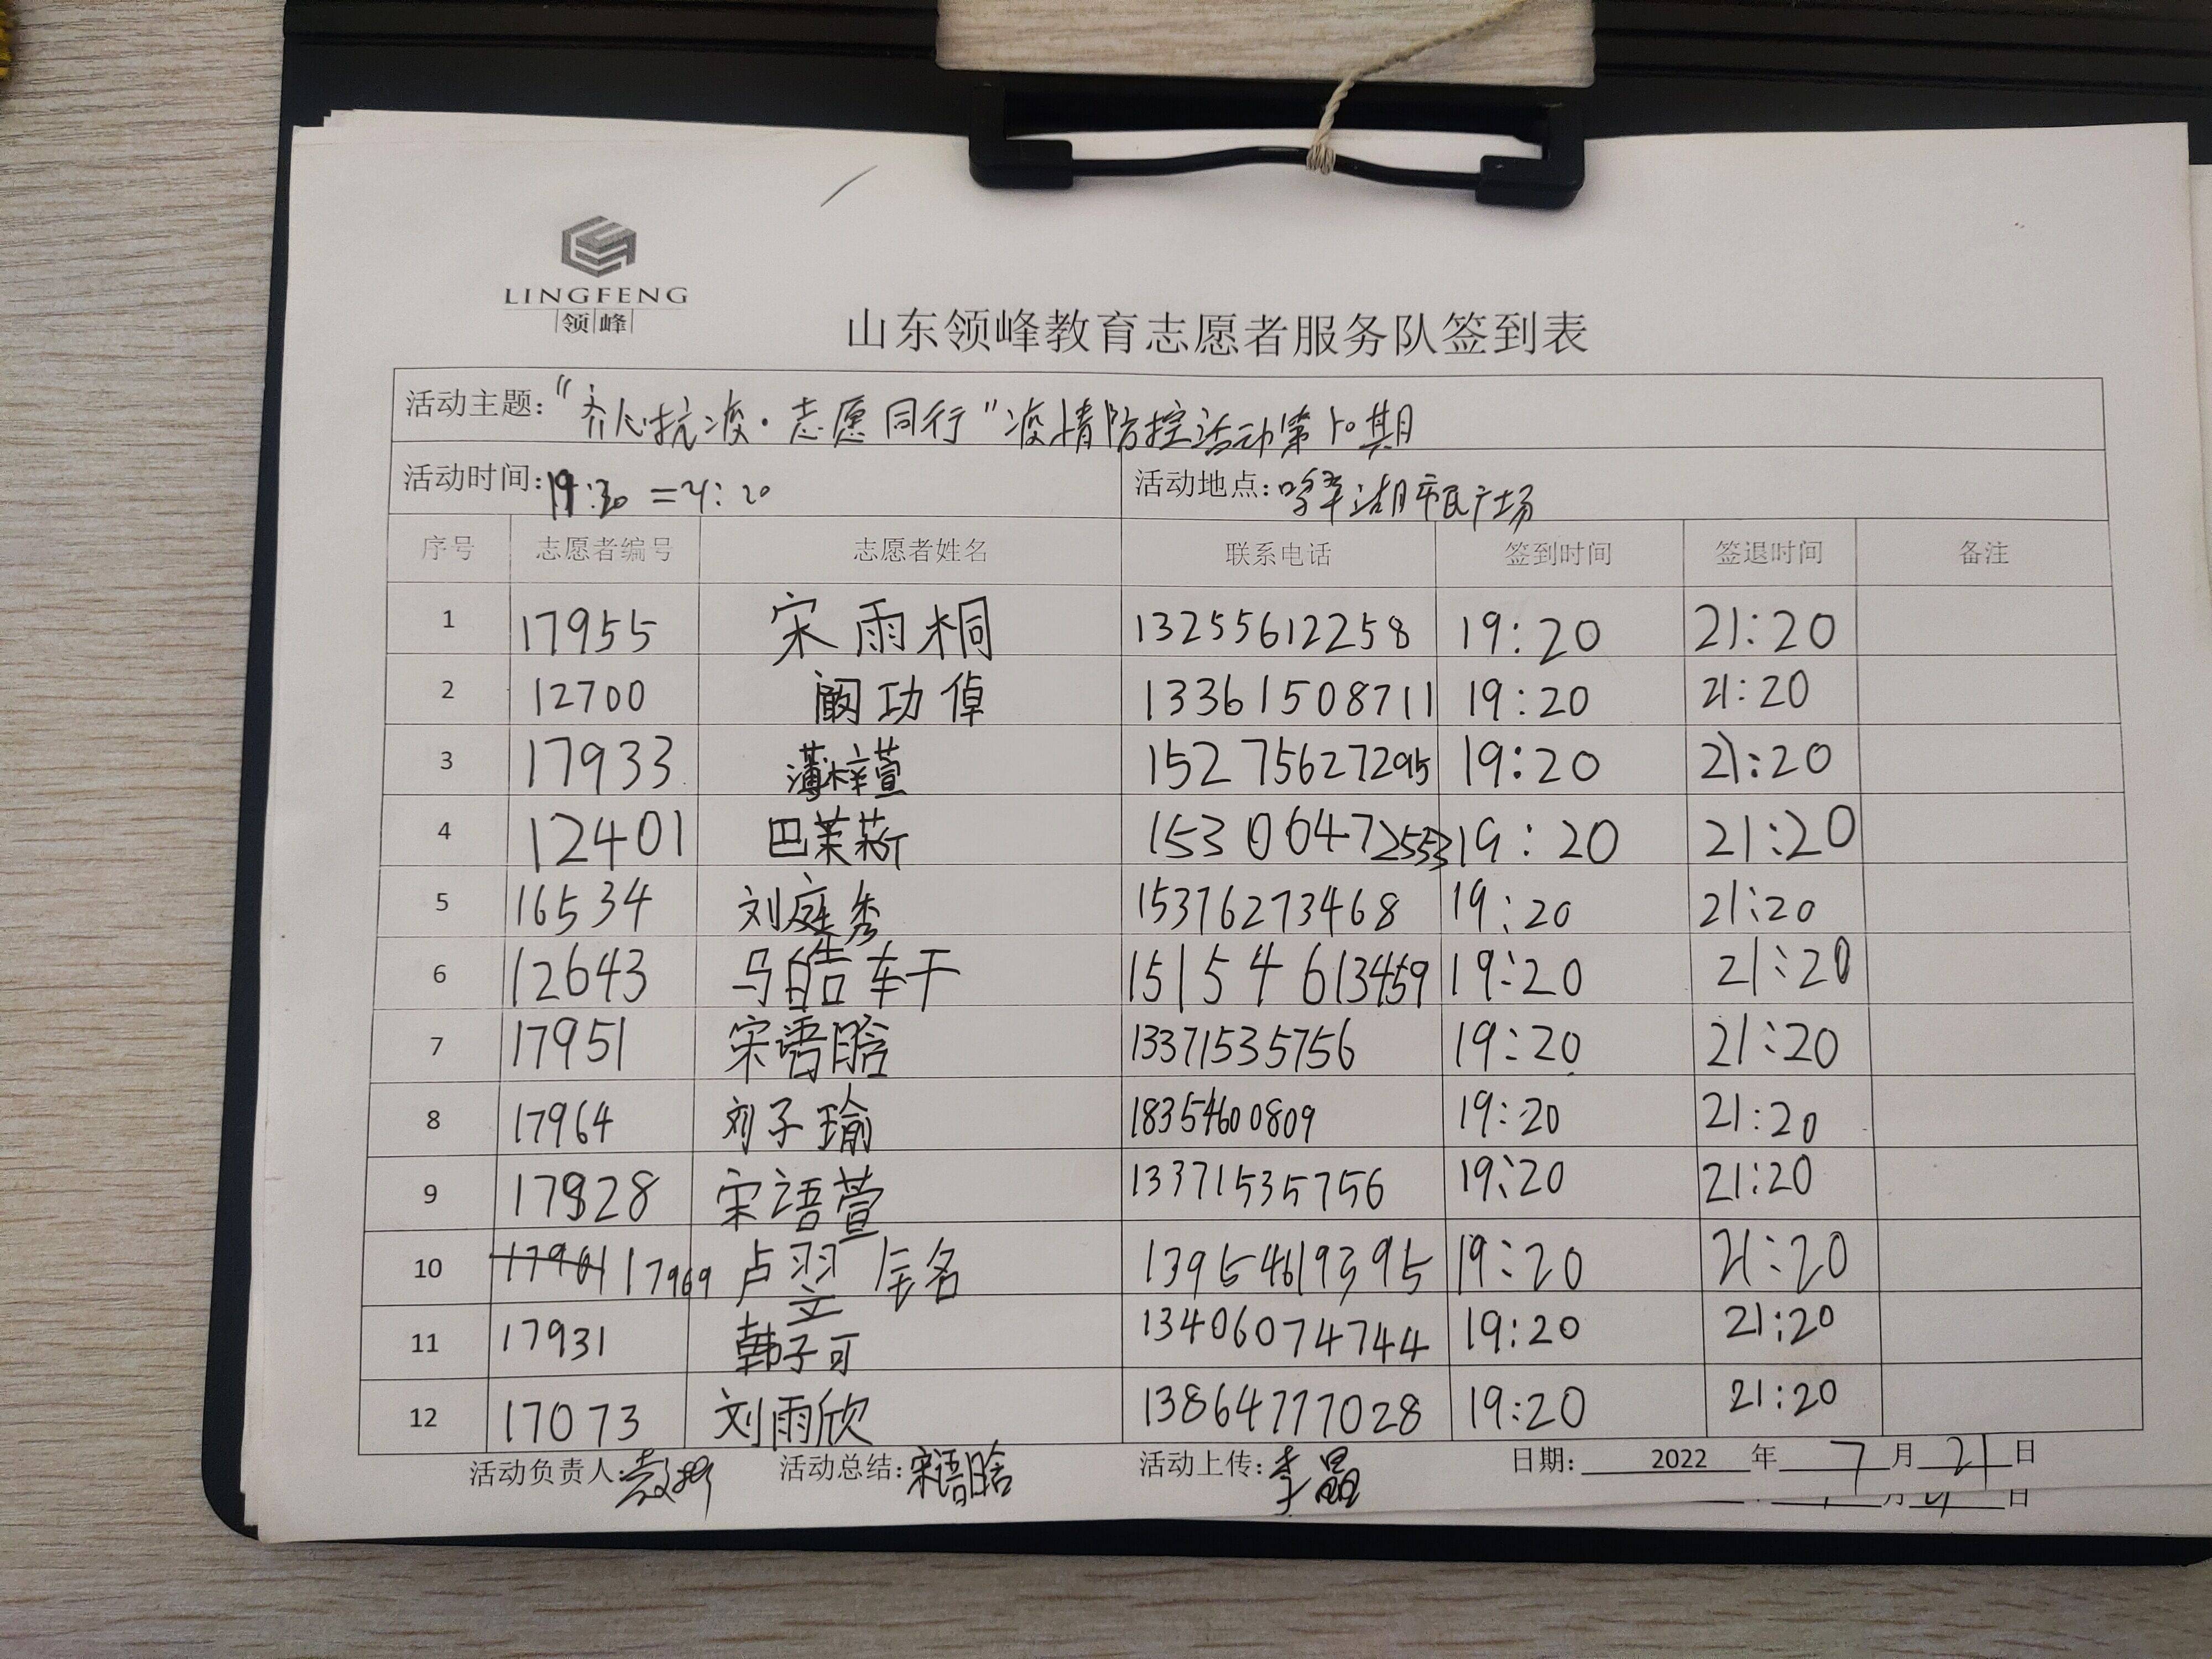 LINGFENG
领峰
山东领峰教育志愿者服务队签到表
活动主题:“齐心抗疫·志愿同行”疫情防控活动第十期
活动时间: 活动地点:
序号 志愿者编号 志愿者姓名 联系电话 签到时间 签退时间 备注
1 17955 宋雨桐 13255612258 19:20 21:20
2 12700 阚功倬 13361508711 19:20 21:20
3 17933 薄梓萱 15275627295 19:20 21:20
4 12401 巴茉菥 15306472553 19:20 21:20
5 16534 刘庭秀 15376273468 19:20 21:20
6 12643 马皓轩 15154613459 19:20 21:20
7 17951 宋语晗 13371535756 19:20 21:20
8 17964 刘子瑜 18354600809 19:20 21:20
9 17928 宋语萱 13371535756 19:20 21:20
10 17969 卢翌 13954619395 19:20 21:20
11 17931 韩子可 13406074744 19:20 21:20
12 17073 刘雨欣 13864777028 19:20 21:20
活动负责人: 活动总结:宋语晗 活动上传:李 日期: 2022 年 7 月 21 日
月 日